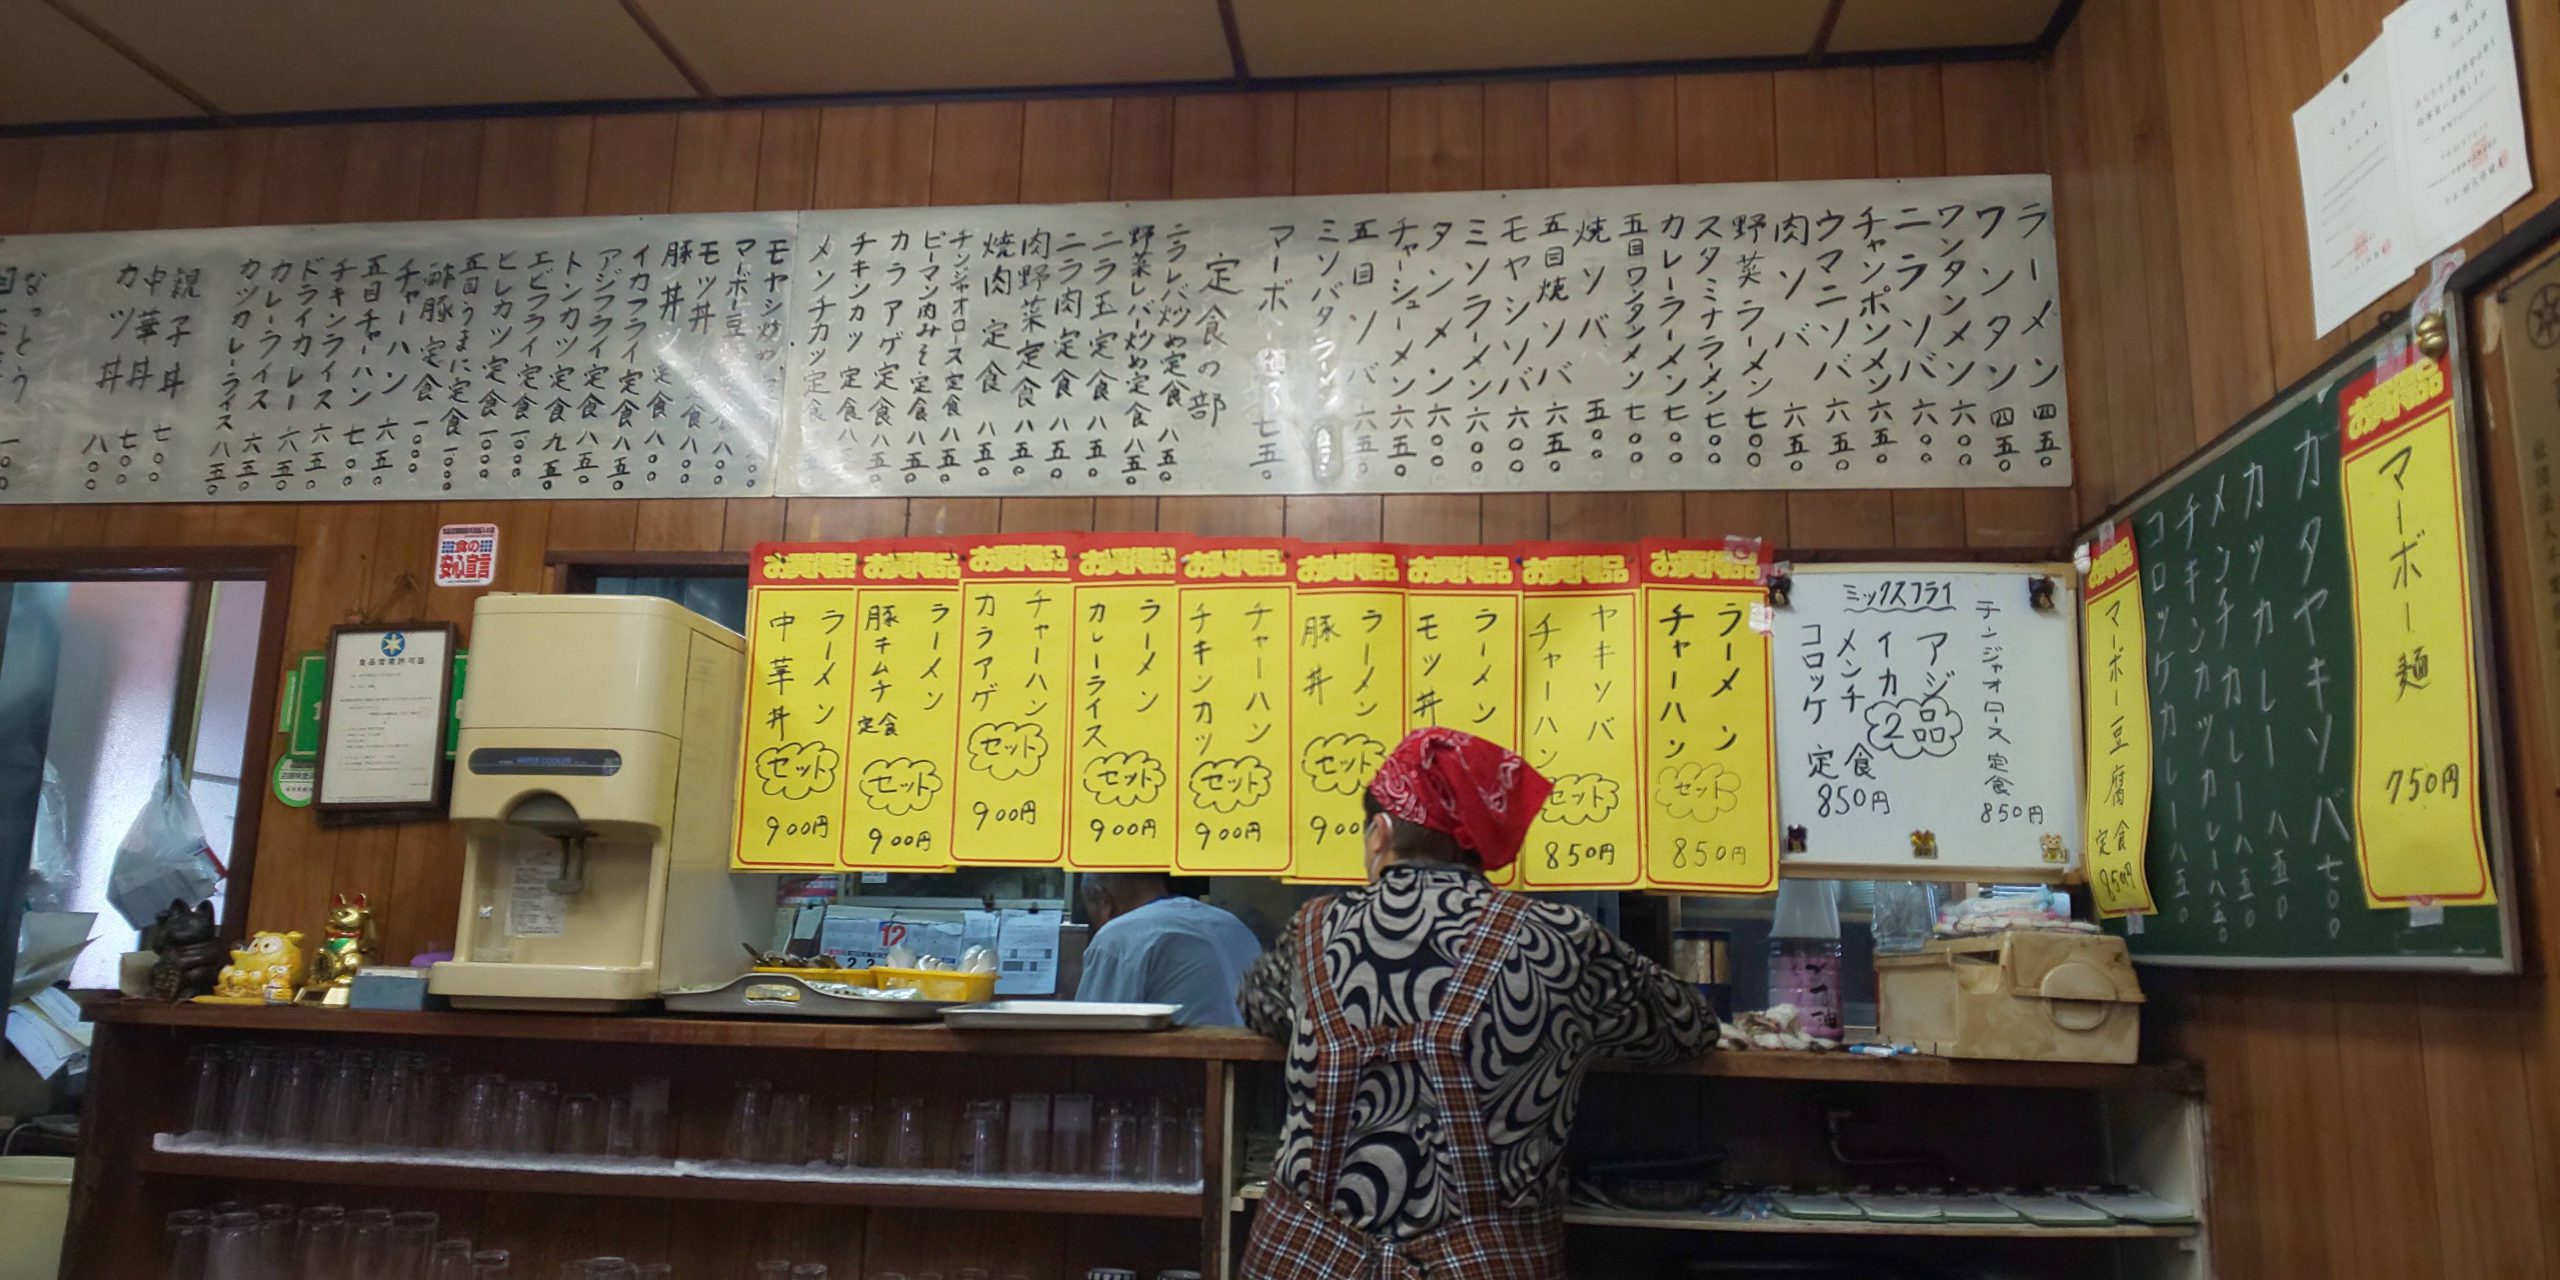 ラーメン 四五〇
ワンタン 四五〇
ワンタンメン 六〇〇
ニラソバ 六〇〇
チャンポンメン 六五〇
ウマニソバ 六五〇
肉ソバ 六五〇
野菜ラーメン 七〇〇
スタミナラーメン 七〇〇
カレーラーメン 七〇〇
五目ワンタンメン 七〇〇
焼ソバ 五〇〇
五目焼ソバ 六五〇
モヤシソバ 六〇〇
ミソラーメン 六〇〇
タンメン 六〇〇
チャーシューメン 六五〇
五目ソバ 六五〇
ミソバタラーメン
マーボー 七五〇
定食の部
ニラレバ炒め定食 八五〇
野菜レバー炒め定食 八五〇
ニラ玉定食 八五〇
ニラ肉定食 八五〇
肉野菜定食 八五〇
焼肉定食 八五〇
チンジャオロース定食 八五〇
ピーマン肉みそ定食 八五〇
カラアゲ定食 八五〇
チキンカツ定食 八五〇
メンチカツ定食
モヤシ炒め
マーボー豆
モツ丼 八〇〇
豚丼 八〇〇
イカフライ定食 八五〇
アジフライ定食 八五〇
トンカツ定食 八五〇
エビフライ定食 九五〇
ヒレカツ定食 一〇〇〇
五目うまに定食 一〇〇〇
酢豚定食 一〇〇〇
チャーハン 六五〇
五目チャーハン 七〇〇
チキンライス 六五〇
ドライカレー 六五〇
カレーライス 六五〇
カツカレーライス 八五〇
親子丼 七〇〇
中華丼 七〇〇
カツ丼 八〇〇
なっとう 一〇〇
食の
安心宣言
食品営業許可証
WATER COOLER
お買得品
ラーメン
チャーハン
セット
850円
お買得品
ヤキソバ
チャーハン
セット
850円
お買得品
ラーメン
モツ丼
お買得品
ラーメン
豚丼
セット
900
お買得品
チャーハン
チキンカツ
セット
900円
お買得品
ラーメン
カレーライス
セット
900円
お買得品
チャーハン
カラアゲ
セット
900円
お買得品
ラーメン
豚キムチ定食
セット
900円
お買得品
ラーメン
中華丼
セット
900円
チンジャオロース定食
850円
ミックスフライ
アジ
イカ
メンチ
コロッケ
2品
定食
850円
お買得品
マーボー麺
750円
カタヤキソバ 七〇〇
カツカレー 八五〇
メンチカツカレー 八五〇
チキンカツカレー 八五〇
コロッケカレー 八五〇
お買得品
マーボー豆腐定食
850円
12